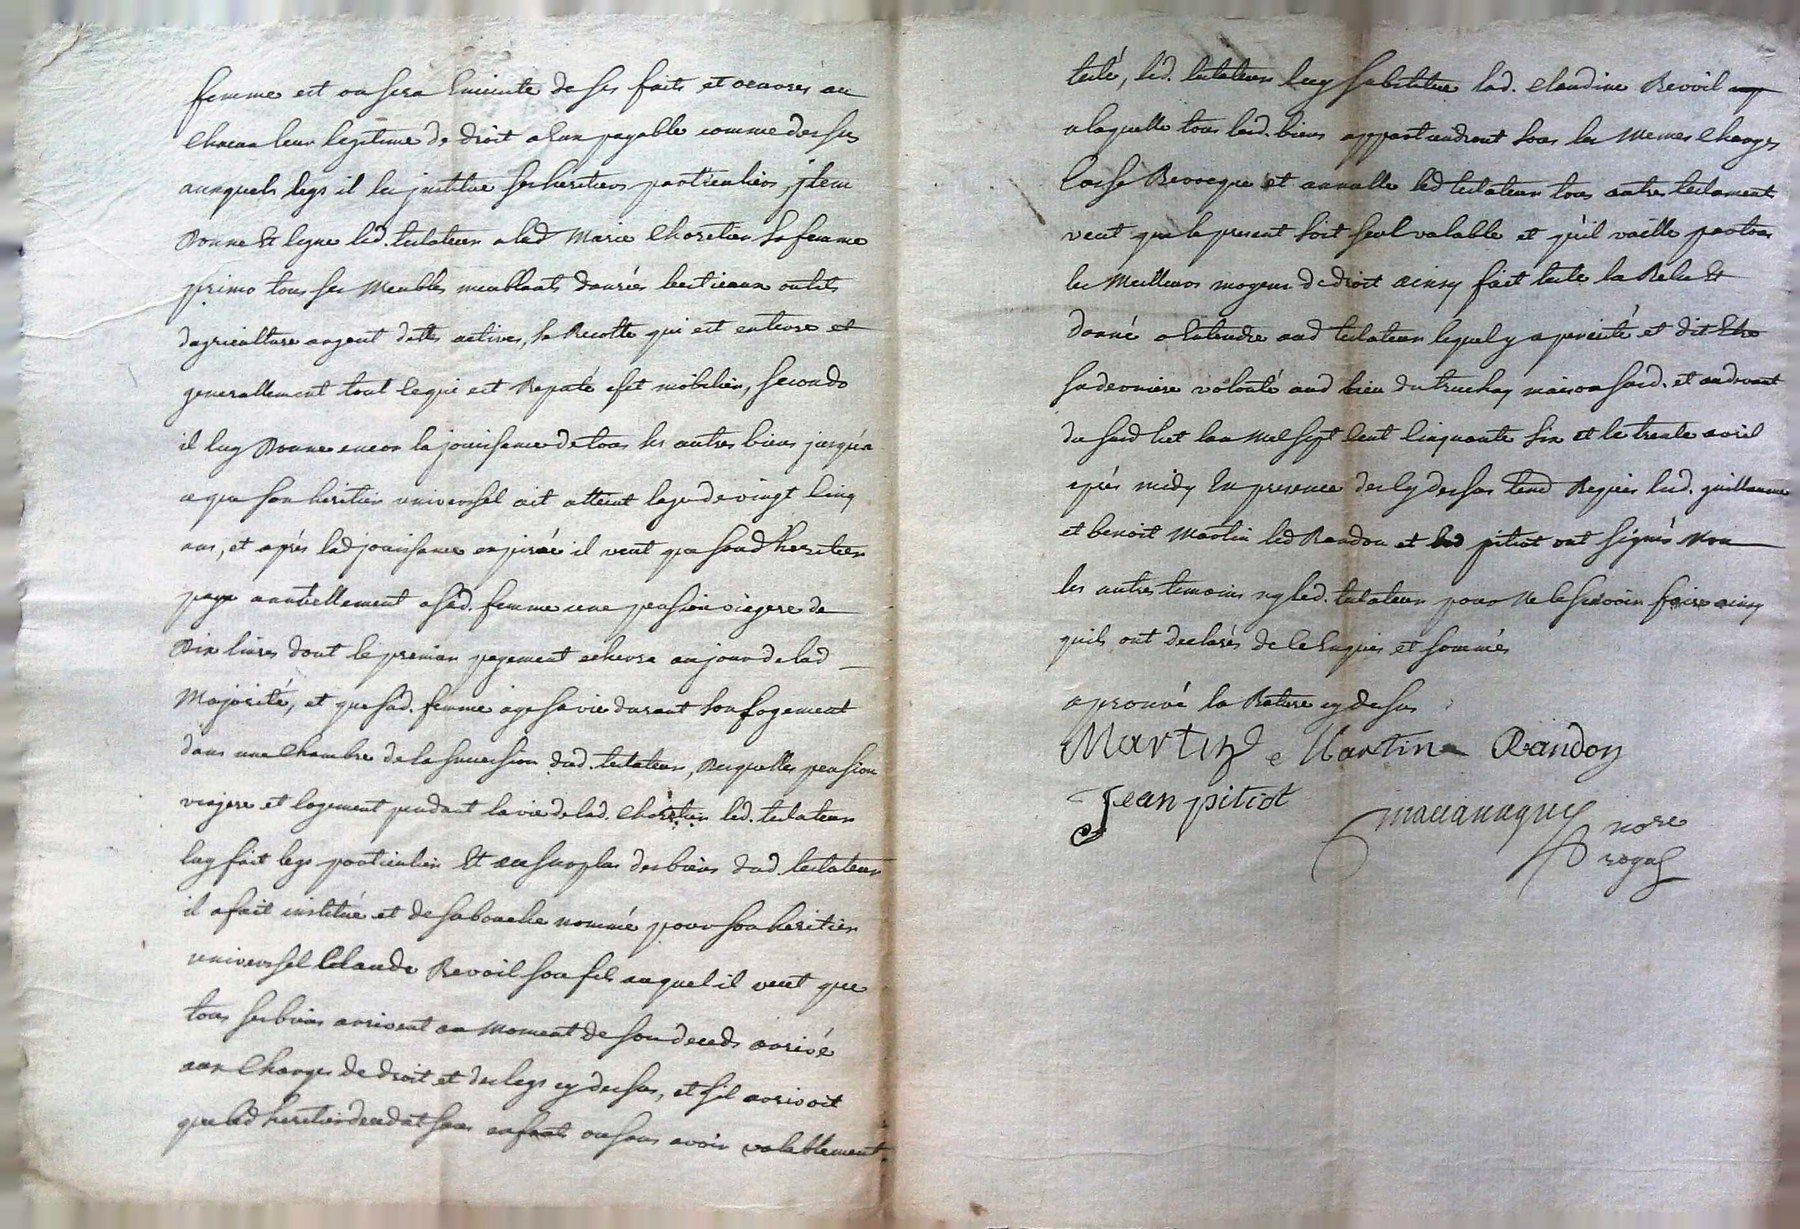 femme est ou sera Enceinte de ses faits et œuvres au
Chacun leur legitime de droit a Eux payable comme dessus
auxquels legs il les jnstitue ses heritiers particuliers, jtem
Donne Et legue led. testateur a lad Marie Choretier sa femme
primo tous ses Meubles meublants danrées bestieaux outils
dagriculture argent dettes actives, la Recolte qui est enterre et
generallement tout ce qui est Reputé efet mobilier, secondo
il luy Donne encor la jouissance de tous ses autres biens jusqu'a
ce que son heritier universel ait atteint lage de vingt Cinq
ans, et aprés lad jouissance expirée il veut que sond heritier
paye annuellement a sad. femme une pension viagere de
Dix livres dont le premier payement echevra au jour de lad
Majorité, et que sad. femme aye sa vie durant son logement
dans une Chambre de la succession dud. testateur, Desquelles pension
viagere et logement pendant la vie de lad. Choretier led. testateur
luy fait legs particulier Et au surplus des biens dud. testateur
il a fait institué et de sa bouche nommé pour son heritier
universel Claude Revoil son fils auquel il veut que
tous ses biens arrivent au Moment de son deceds arrivé
aux Charges de droit et des legs cy dessus, et s'il arrivoit
que led heritier decedat sans enfants ou sans avoir valablement
testé, led. testateur luy substitue lad. Claudine Revoil
a laquelle tous lesd. biens appartiendront sous les Memes Charges
Casse Revocque et annulle led testateur tous autres testament
veut que le present soit seul valable et qu'il vaille par tous
les Meilleurs moyens de droit ainsy fait testé la Relu Et
donné a Entendre aud testateur lequel y a persisté et dit Etre
sa derniere volonté aud lieu du truchay maison sard. et au devant
du sard lict lan Mil sept Cent Cinquante Six et le trente avril
aprés midy En presence des cy dessus temd Requis lesd. guillaume
et benoit Martin led Randon et led pitiot ont signés Non
les autres temoins ny led. testateur pour Ne le sçavoir faire ainsy
quils ont declarés de ce Enquis et sommés
aprouvé la Rature cy dessus
Martin Martin Randon
Jean pitiot
nore
royal